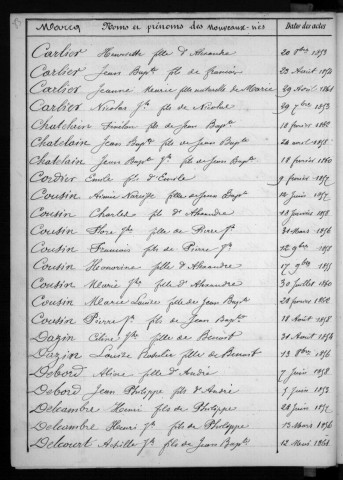 Marcq Noms et prénoms des nouveaux-nés Dates des actes
Carlier Henriette fille d'Alexandre 20 8bre 1853
Carlier Jean Bapte fils de francois 23 Août
Carlier Jeanne fille naturelle de Marie 29 Août
Carlier Nicolas Jh fils de Nicolas 29 7bre 1853
Chatelain fils de Jean Bapte 18 février
Chatelain Jean Bapte fils de Jean Bapte
Chatelain Jean Bapte Jh fils de Jean Bapte 18 février 1860
Cordier Emile fils d'Emile 9 février
Cousin Narcisse fille de Jean Bapte Juin
Cousin Charles fils d'Alexandre 18 février
Cousin Flore Jh fille de Pierre Jh 31 Mars 1856
Cousin Francois fils de Pierre Jh 12 9bre
Cousin Honorine fille d'Alexandre 17 9bre
Cousin Marie fille d'Alexandre 30 Juillet 1860
Cousin Marie Louise fille de Jean Bapte 28 février
Cousin Pierre Jh fils de Jean Bapte 18 Août 1858
Dazin Jh fille de Benoit 31 Août
Dazin Louise Rosalie fille de Benoit 13 8bre
Debord Aline fille d'André 7 Juin 1858
Debord Jean Philippe fils d'André 5 Juin 1853
Delcambre Henri fils de Philippe 28 Juin
Delcambre Henri Jh fils de Philippe 13 Mars 1856
Delcourt Achille Jh fils de Jean Bapte 12 Mai